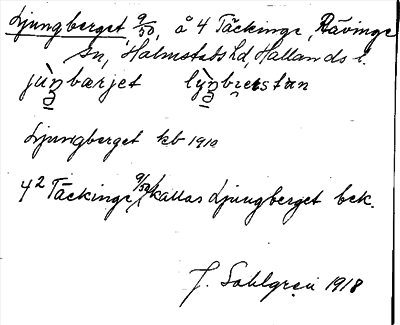 Ljungberget 9/50, å 4 Täckinge, Rävinge
sn, Halmstads hd, Hallands l.
Ljungberget kb 1910
4² Täckinge 9/50 kallas Ljungberget bek.
J. Sahlgren 1918